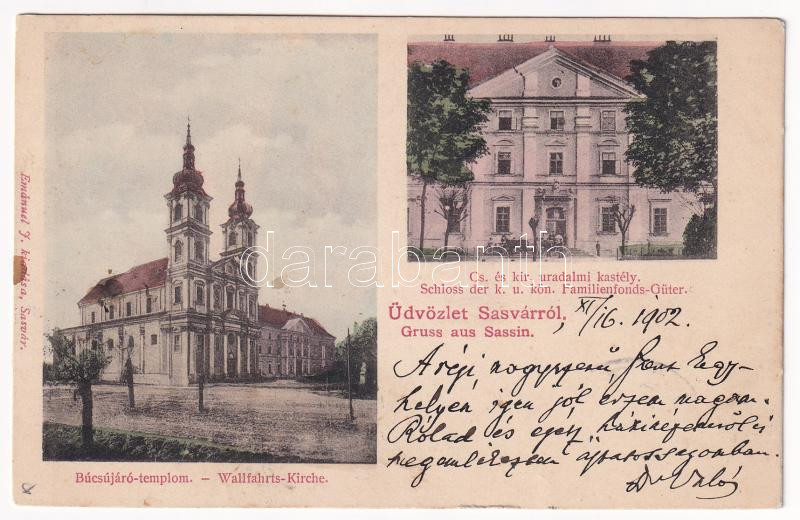 Emánuel J. kiadása, Sasvár.
Cs. és kir. uradalmi kastély.
Schloss der k. u. kön. Familienfonds-Güter.
Üdvözlet Sasvárról,
Gruss aus Sassin.
XI/16. 1902.
A régi nagyszerű, Szent Egy-
helyen igen jól érzem magam.
Rólad és egész
megemlékeztem ájtatosságomban.
Búcsújáró-templom. – Wallfahrts-Kirche.
darabanth